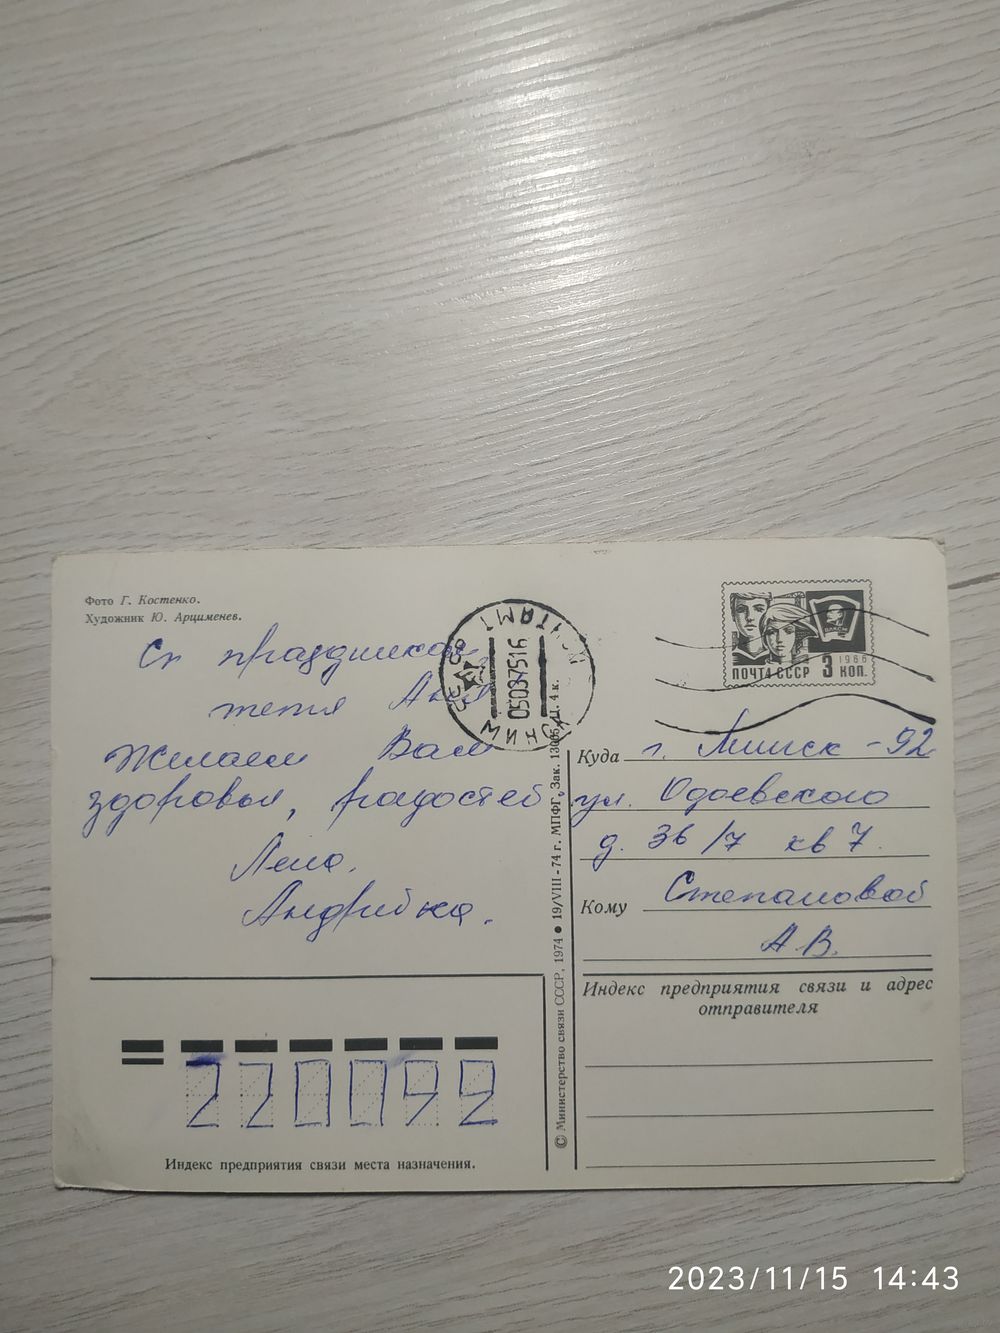 Фото Г. Костенко.
Художник Ю. Арцименев.
С праздником,
тетя
Желаем Вам
здоровья, радостей
Лена,
Андрейка.
СССР
МИНСК ПОЧТАМТ
05037516
ВЛКСМ
1966
ПОЧТА СССР 3 КОП.
Куда г. Минск - 92
ул. Одоевского
д. 36/7 кв 7.
Кому Степановой
А.В.
Индекс предприятия связи и адрес
отправителя
220092
Индекс предприятия связи места назначения.
© Министерство связи СССР, 1974 ● 19/VIII - 74 г. МПФГ, Зак. Ц. 4 к.
2023/11/15 14:43